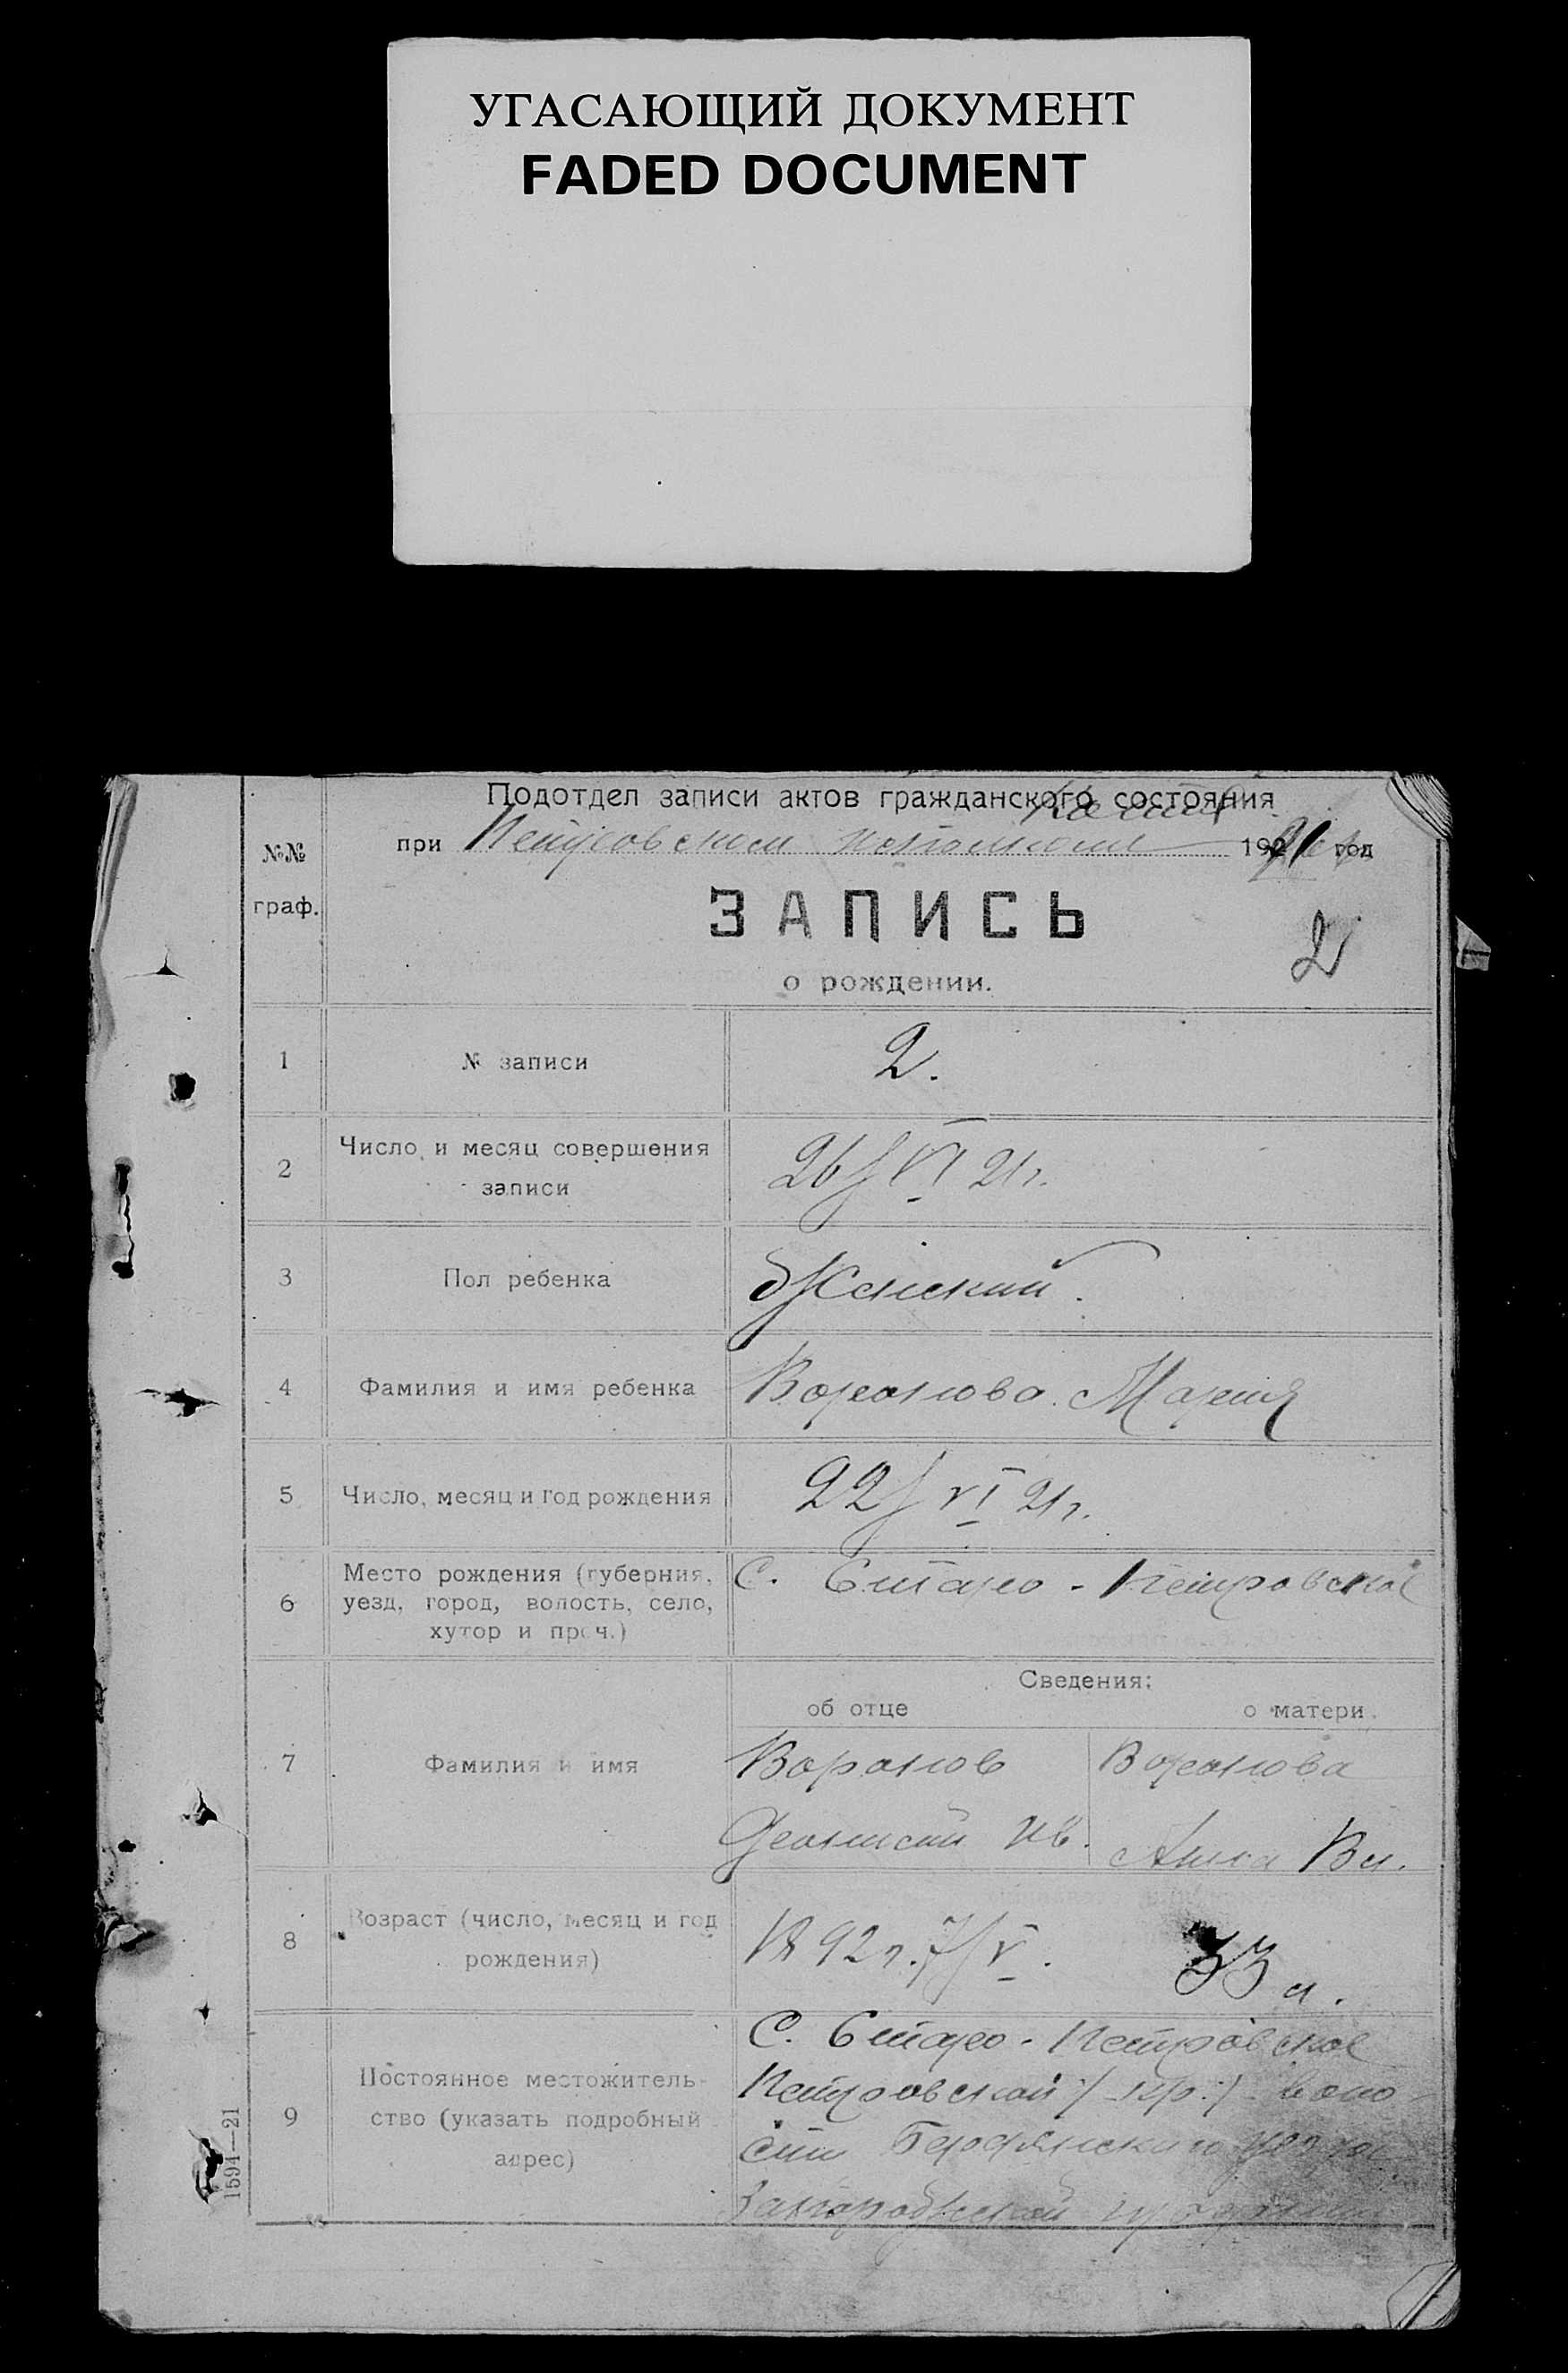 УГАСАЮЩИЙ ДОКУМЕНТ
FADED DOCUMENT
Подотдел записи актов гражданского состояния
при Петровском 1921 год
№№
граф.
ЗАПИСЬ
2
о рождении.
1 № записи 2.
2 Число и месяц совершения
записи
26/VI 21г.
3 Пол ребенка Женский.
4 Фамилия и имя ребенка Воронова Мария
5 Число, месяц и год рождения 22/VI 21г.
6 Место рождения (губерния,
уезд, город, волость, село,
хутор и проч.)
С. Старо-Петровское
Сведения:
об отце о матери.
7 Фамилия и имя
Воронов Воронова
Ив. Анна Вл.
8 Возраст (число, месяц и год
рождения)
1892г. 7/V. 33 л.
9 Постоянное местожитель-
ство (указать подробный
адрес)
С. Старо-Петровское
Петровской /-пр:/ воло-
сти Бердянского уезда
Запорожской губернии
1594—21